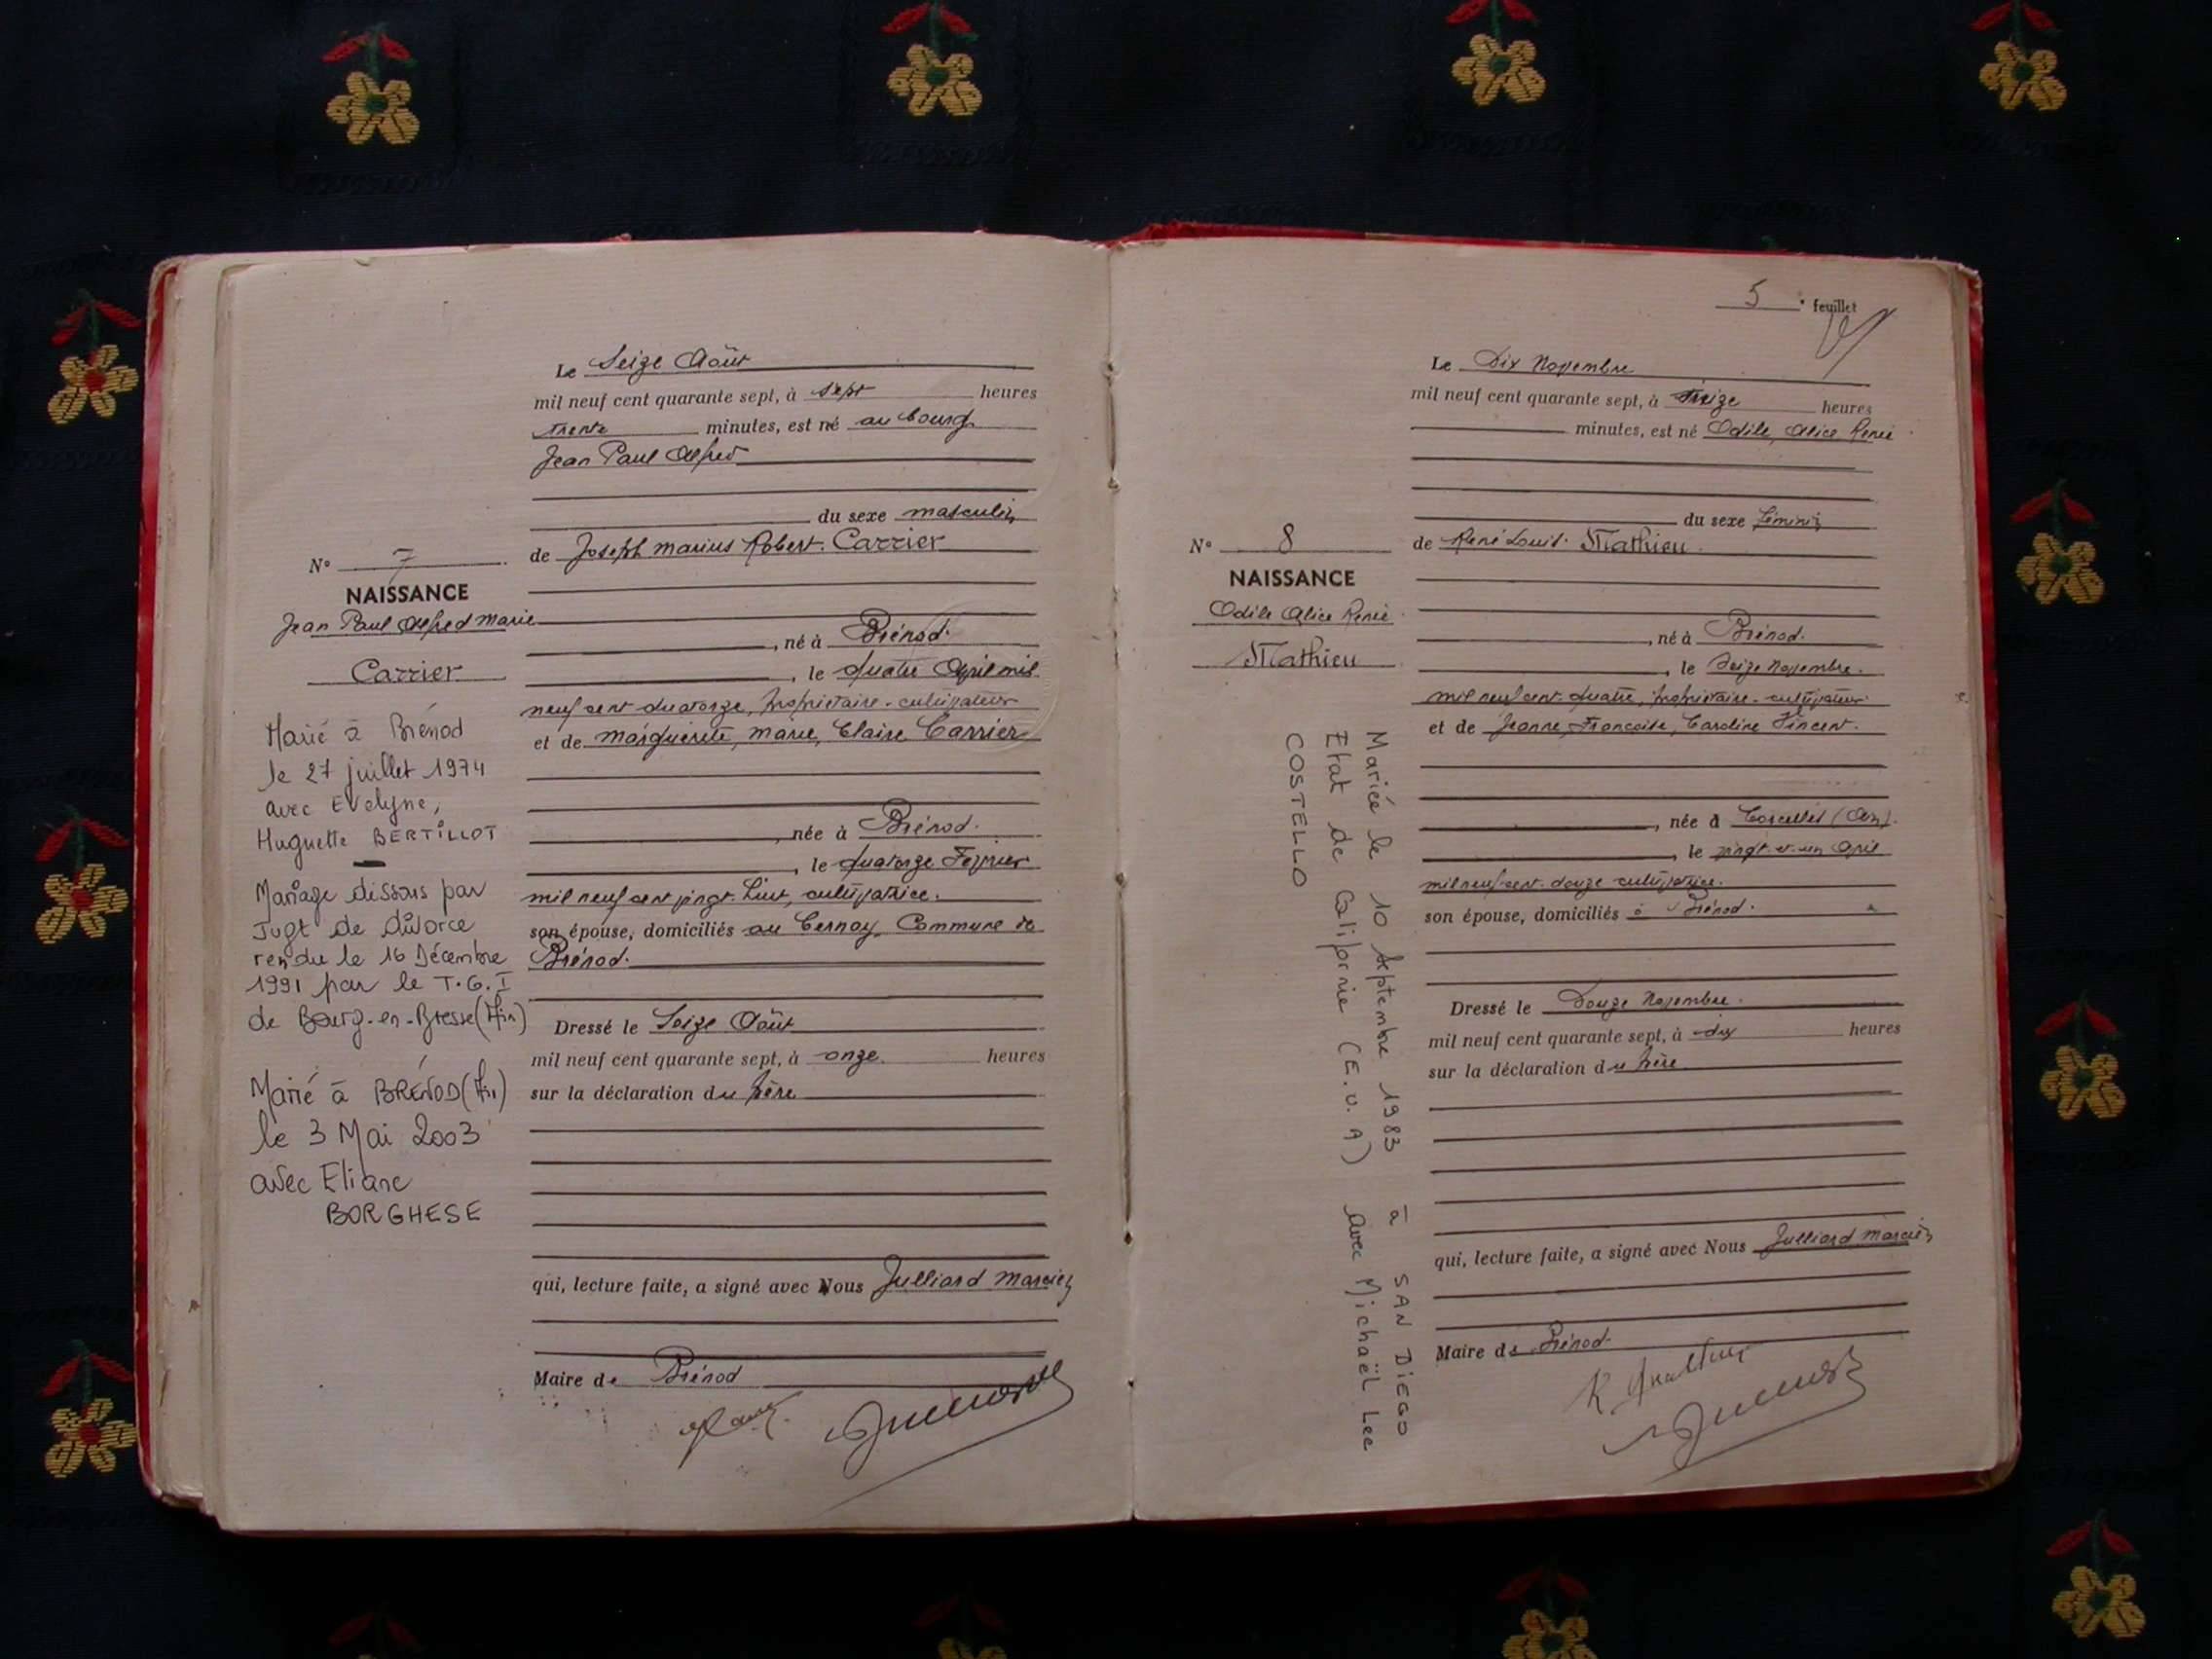 Le Seize Août
mil neuf cent quarante sept, à sept heures
trente minutes, est né au bourg
Jean Paul Alfred
du sexe masculin
de Joseph Marius Robert. Carrier
N° 7
NAISSANCE
Jean Paul Alfred Marie
Carrier
, né à Brénod.
, le quatre Avril mil
neuf cent quatorze, propriétaire-cultivateur
et de Marguerite, Marie, Claire Carrier
, née à Brénod.
, le quatorze Février
mil neuf cent vingt-huit, cultivatrice.
son épouse, domiciliés au Cernay, Commune de
Brénod.
Dressé le Seize Août
mil neuf cent quarante sept, à onze heures
sur la déclaration du père
qui, lecture faite, a signé avec Nous Julliard Marcien
Maire de Brénod
Marié à Brénod
le 27 juillet 1974
avec Evelyne,
Huguette BERTILLOT
Mariage dissous par
Jugt de divorce
rendu le 16 Décembre
1991 par le T.G.I
de Bourg-en-Bresse (Ain)
Marié à BRÉNOD (Ain)
le 3 Mai 2003
avec Eliane
BORGHESE
5e feuillet
Le Dix Novembre
mil neuf cent quarante sept, à heures
minutes, est né Odile, Alice, Renée
du sexe féminin
de René Louis. Mathieu
N° 8
NAISSANCE
Odile Alice Renée
Mathieu
, né à Brénod.
, le Seize Novembre.
mil neuf cent quatre, propriétaire-cultivateur
et de Jeanne, Françoise, Caroline Vincent.
, née à Corcelles (Ain).
, le vingt et un Avril
mil neuf cent douze cultivatrice.
son épouse, domiciliés à Brénod.
Dressé le Douze Novembre.
mil neuf cent quarante sept, à dix heures
sur la déclaration du père
qui, lecture faite, a signé avec Nous Julliard Marcien
Maire de Brénod.
Mariée le 10 septembre 1983 à SAN DIEGO
Etat de Californie (E.U.A) avec Michaël Lee
COSTELLO